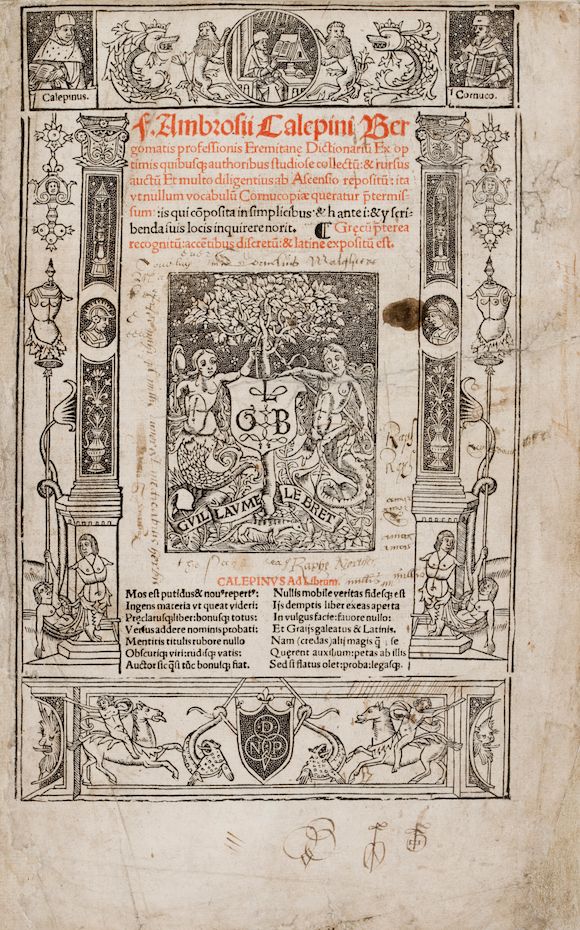 Calepinus.
Cornuco.
F. Ambrosii Calepini Ber
gomatis professionis Eremitanę Dictionariū Ex op
timis quibusq; authoribus studiose collectū: & rursus
auctū Et multo diligentius ab Ascensio repositū: ita
vt nullum vocabulū Cornucopiæ queratur p̄termis⸗
sum: iis qui cōposita in simplicibus & h ante i: & y scri⸗
benda suis locis inquirere norit. ¶ Gręcū p̄terea
recognitū: accētibus discretū: & latine expositū est.
G B
GVILLAVME LE BRET
Raphe
CALEPINVS Ad Librum.
Mos est putidus & nouꝰ repertꝰ:
Ingens materia vt queat videri:
Pręclarusq; liber: bonusq; totus:
Versus addere nominis probati:
Mentitis titulis rubore nullo
Obscuriq; viri: rudisq; vatis:
Auctor sic q̄si tūc bonusq; fiat.
Nullis mobile veritas fidesq; est
Ijs demptis liber exeas aperta
In vulgus facie: fauore nullo:
Et Graijs galeatus & Latinis.
Nam (credas) alij magis q̄ se
Quęrent auxilium: petas ab illis
Sed si flatus olet: proba: legasq;.
D
NOP